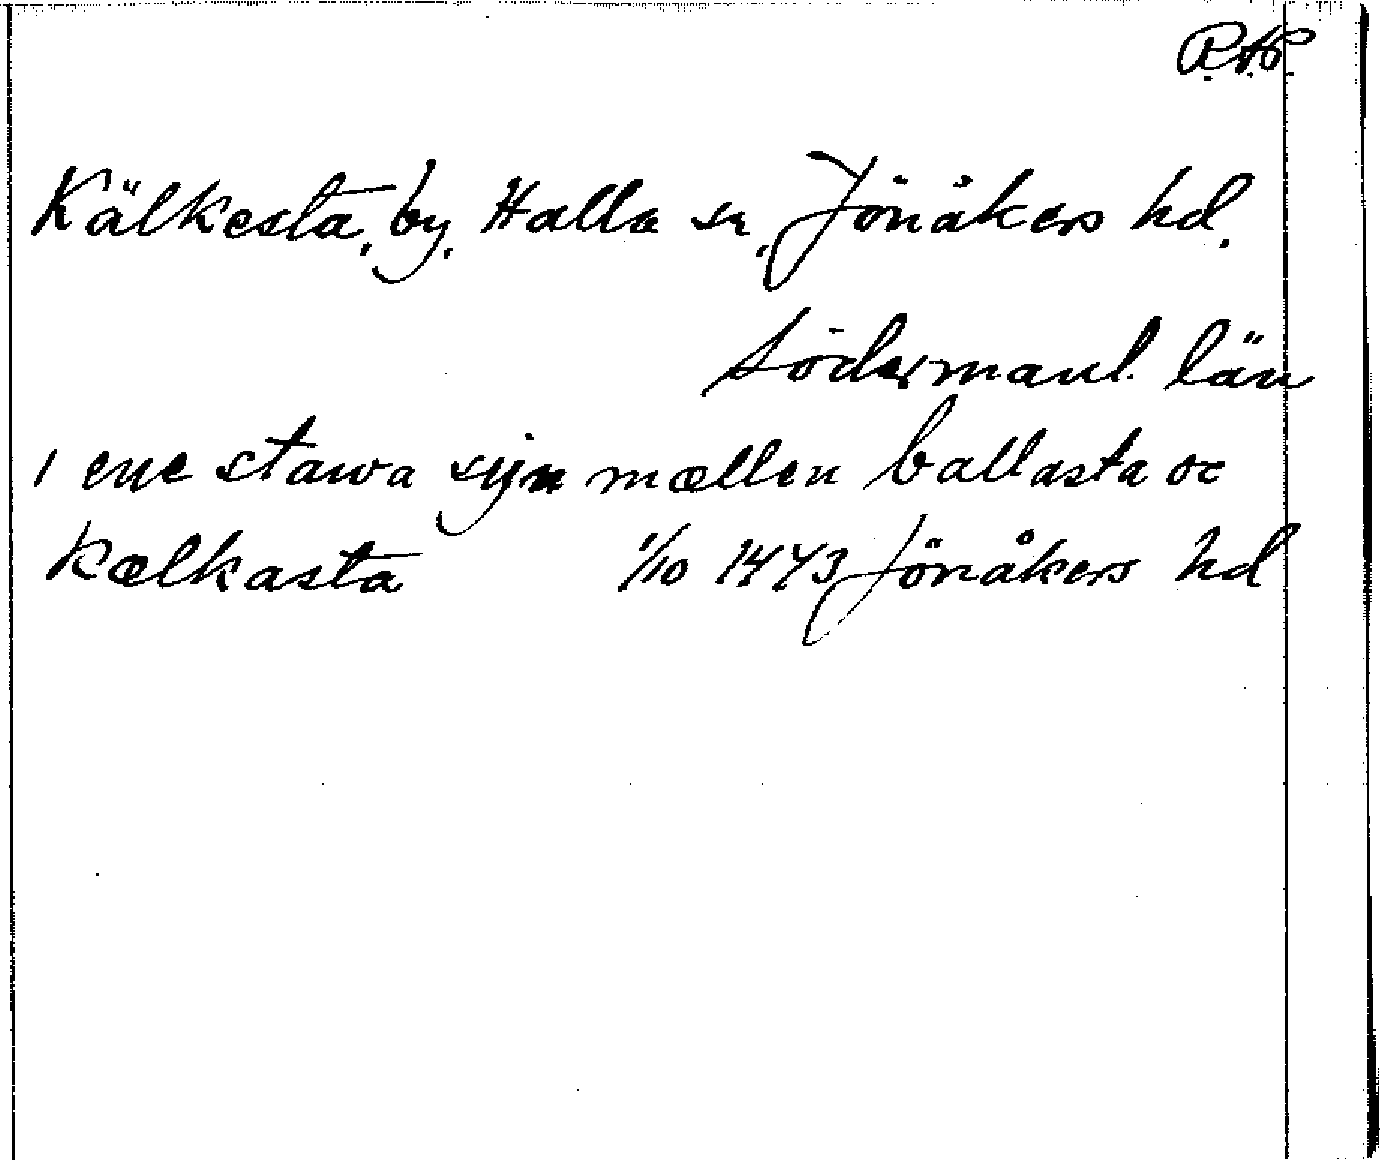 R.A.P.
Kälkesta, by, Halla sn, Jönåkers hd.
Södermanl. län
i ene stawa syn mællen ballasta oc
Kælkasta 1/10 1443 Jönåkers hd